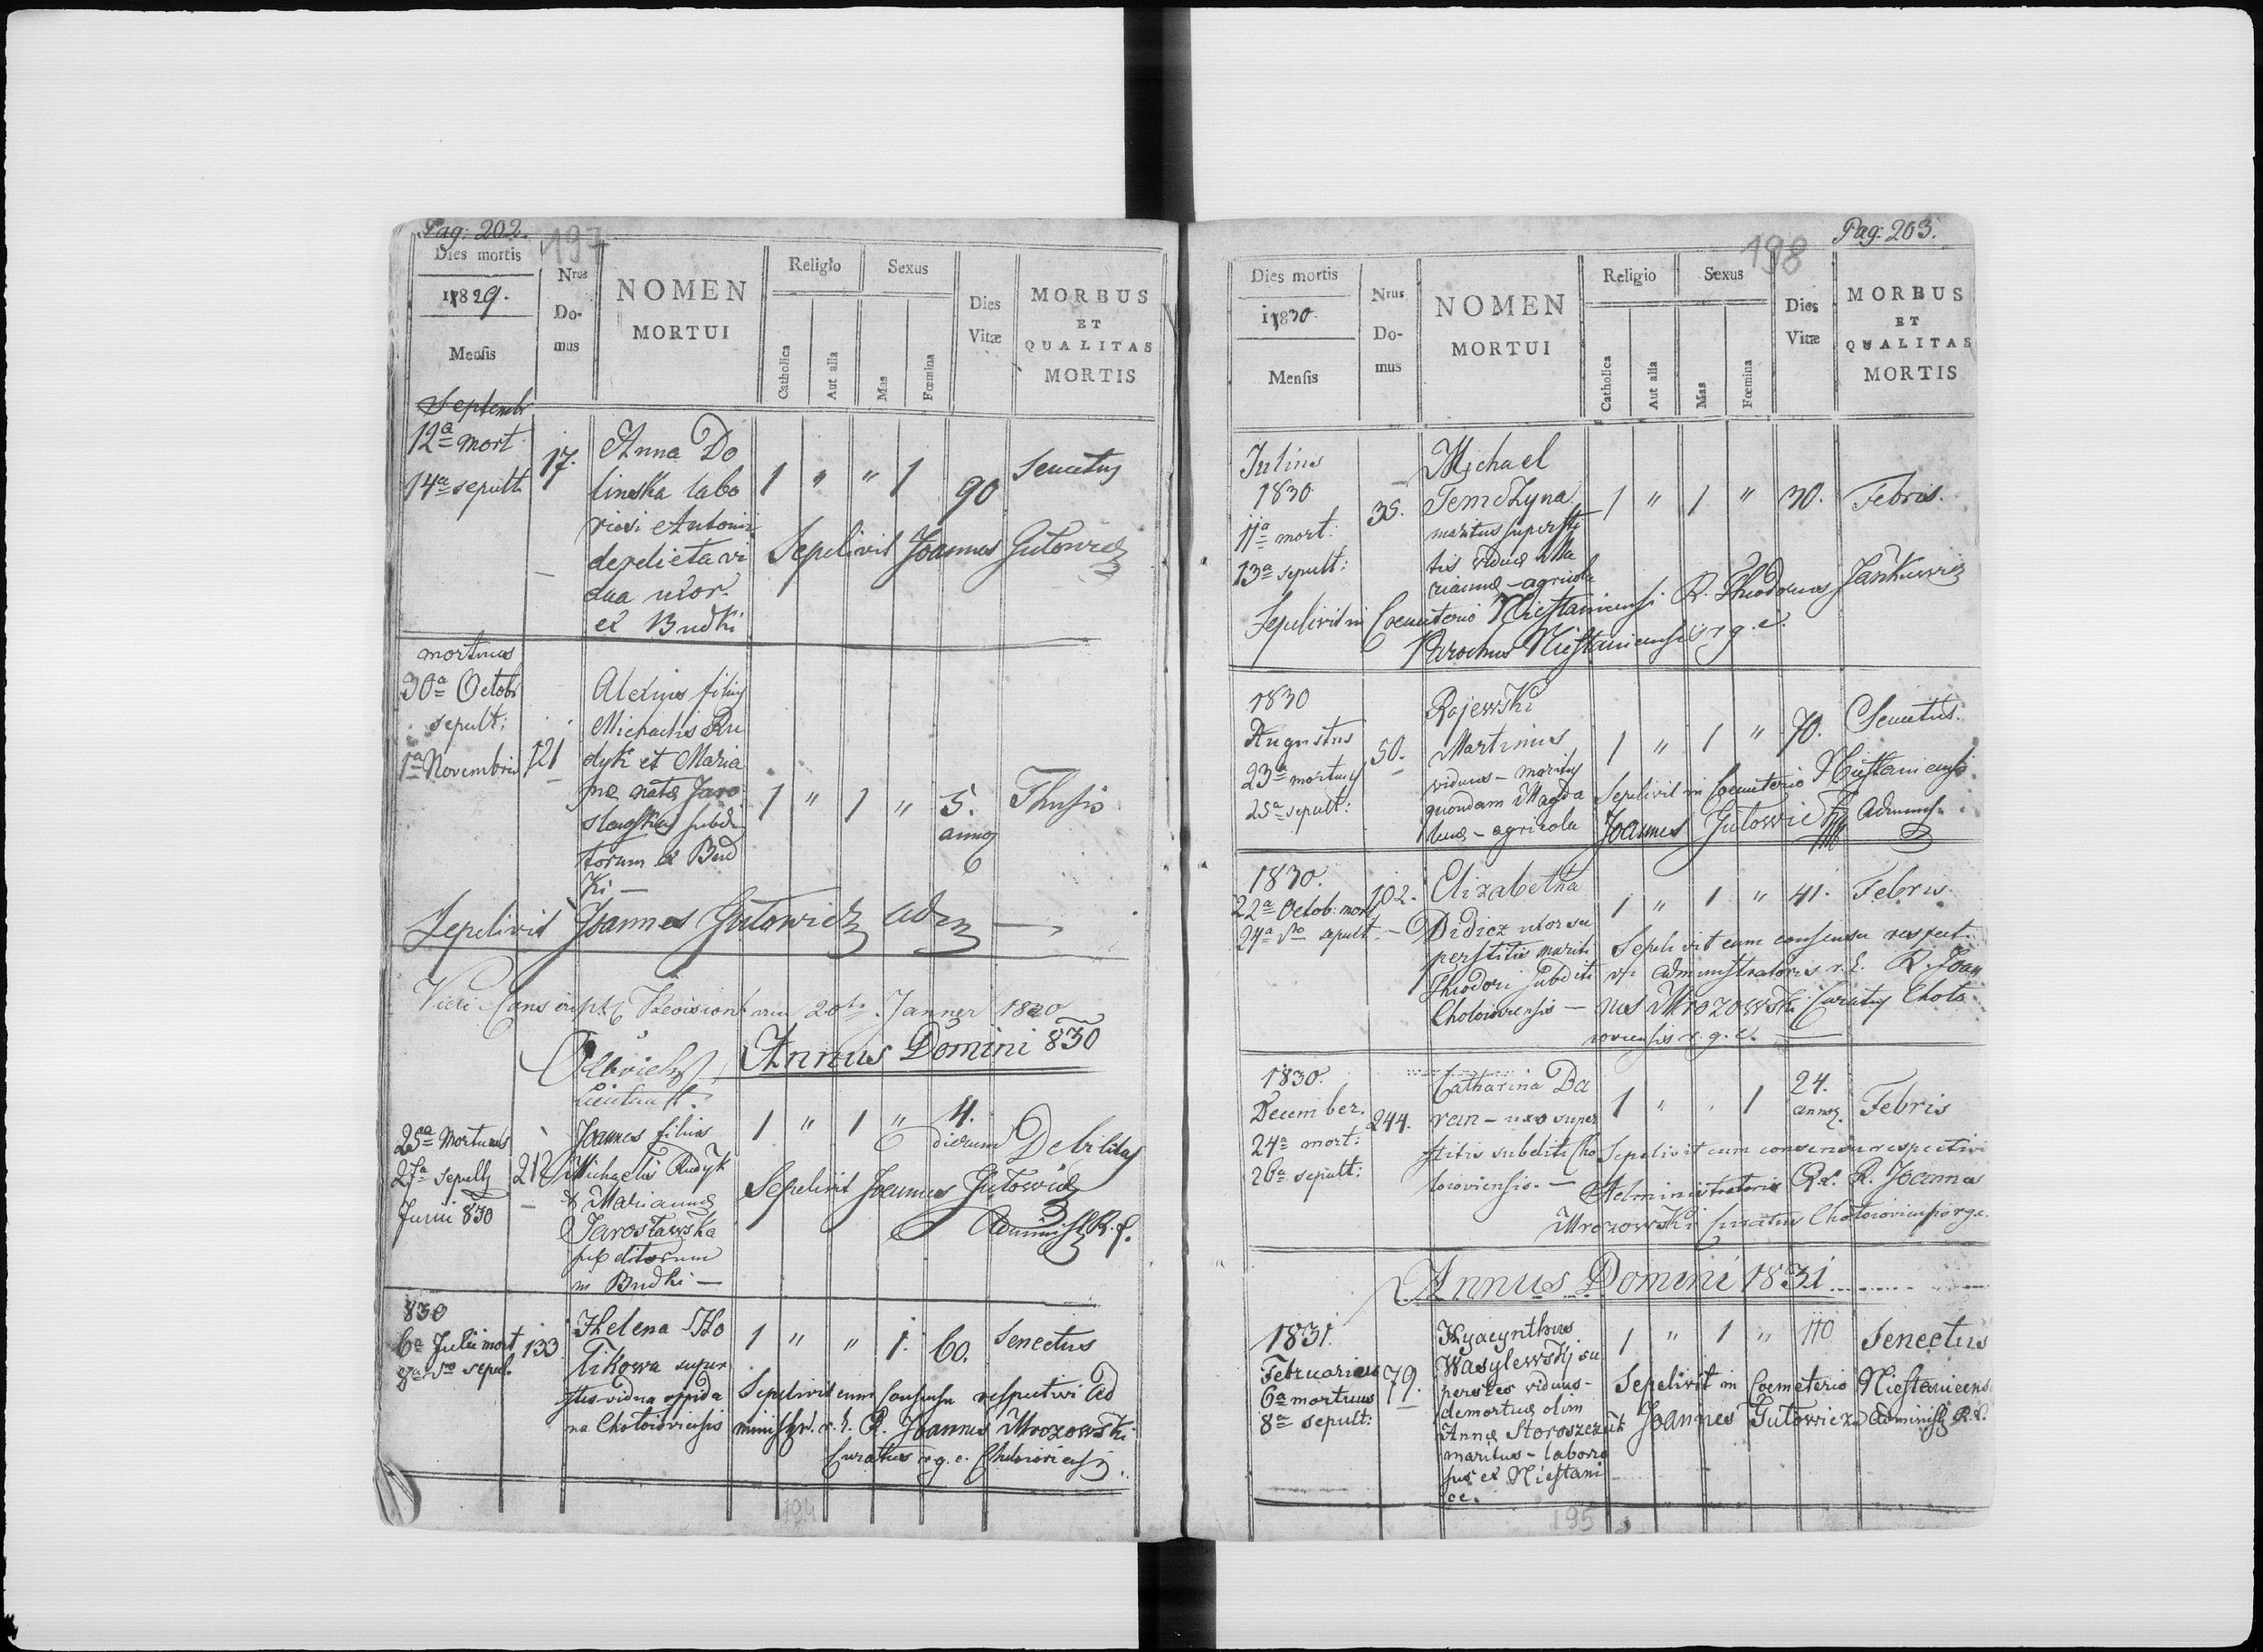 Pag: 202.
197
Dies mortis
1829.
Mensis
Nrus
Do-
mus
NOMEN
MORTUI
Religio
Catholica
Aut alia
Sexus
Mas
Fœmina
Dies
Vitæ
MORBUS
ET
QUALITAS
MORTIS
Septembr
12a mort
14a sepult
17.
Anna Do
linska labo
riosi Antonii
derelicta vi
dua uxor.
ex Budki
1 " " 1 90 Senectus
Sepelivit Joannes Gutowicz
mortuus
30a Octobr
sepult:
1a Novembris
121
Alexius filius
Michaelis Ru
dyk et Maria
næ natæ Jaro
slawska subdi
torum ex Bud
ki —
1 " 1 " 5.
annos
Thusis
Sepelivit Joannes Gutowicz adm
20t Janner 1830
Annus Domini 830
Lieutnant.
25a Mortuus
27a sepult
Junii 830
212
Joannes filius
Michaelis Rudyk
& Mariannæ
Jarosławska
subditorum
in Budki —
1 " 1 " 4.
dierum
Debilitas
Sepelivit Joannes Gutowicz
Administ R. L.
830
6a Julii mort
8a sepul.
133
Helena Ho
likowa super
stes vidua oppida
na Chotoioviensis
1 " " 1. 60. Senectus
Sepelivit cum consensu respectivi Ad
ministr. r. l. R. Joannes Mrozowski
Curatus r. g. c. Chotoioviensis
194
Pag: 203.
198
Dies mortis
1830.
Mensis
Nrus
Do-
mus
NOMEN
MORTUI
Religio
Catholica
Aut alia
Sexus
Mas
Fœmina
Dies
Vitæ
MORBUS
ET
QUALITAS
MORTIS
Julius
1830
11a mort:
13a sepult:
35.
Michael
maritus supersti
tis viduæ Ma
riannæ – agricola
1 " 1 " 30. Febris.
Sepelivit in Coemeterio Niestanicensi R. Theodorus Jankiewicz
Parochus Niestanicensis r. g. c.
1830
Augustus
23a mortuus
25a sepult:
50.
Rajewski
Martinus
viduus – maritus
quondam Magda
lenæ – agricola
1 " 1 " 70. Senectus.
Sepelivit in Coemeterio Niestanicensi
Joannes Gutowicz Adminst.
1830.
22a Octob: mort
24a sepult. –
102.
Elizabetha
Didicz uxor su
perstitis mariti
Theodori subditi
Chotoioviensis —
1 " 1 " 41. Febris.
Sepelivit cum consensu respect:
vi administratoris r. l. R. Joan
nes Mrozowski Curatus Choto
ioviensis r. g. c.
1830.
December.
24a mort:
26a sepult:
244.
Catharina Da
ren – uxo super
stitis subditi Cho
toioviensis. —
1 " " 1
24.
annor.
Febris
Sepelivit cum consensu respectivi
Administratoris R. L. R. Joannes
Mrozowski Curatus Chotoioviensis r g c.
Annus Domini 1831
1831.
Februarius
6a mortuus
8a sepult:
79.
Hyacynthus
Wasylewski su
perstes viduus –
demortuæ olim
Annæ Storoszczuk
maritus – laborio
sus ex Niestani
ce.
1 " 1 " 110 Senectus
Sepelivit in Coemeterio Niestanicens.
Joannes Gutowicz Administ. R. L.
195